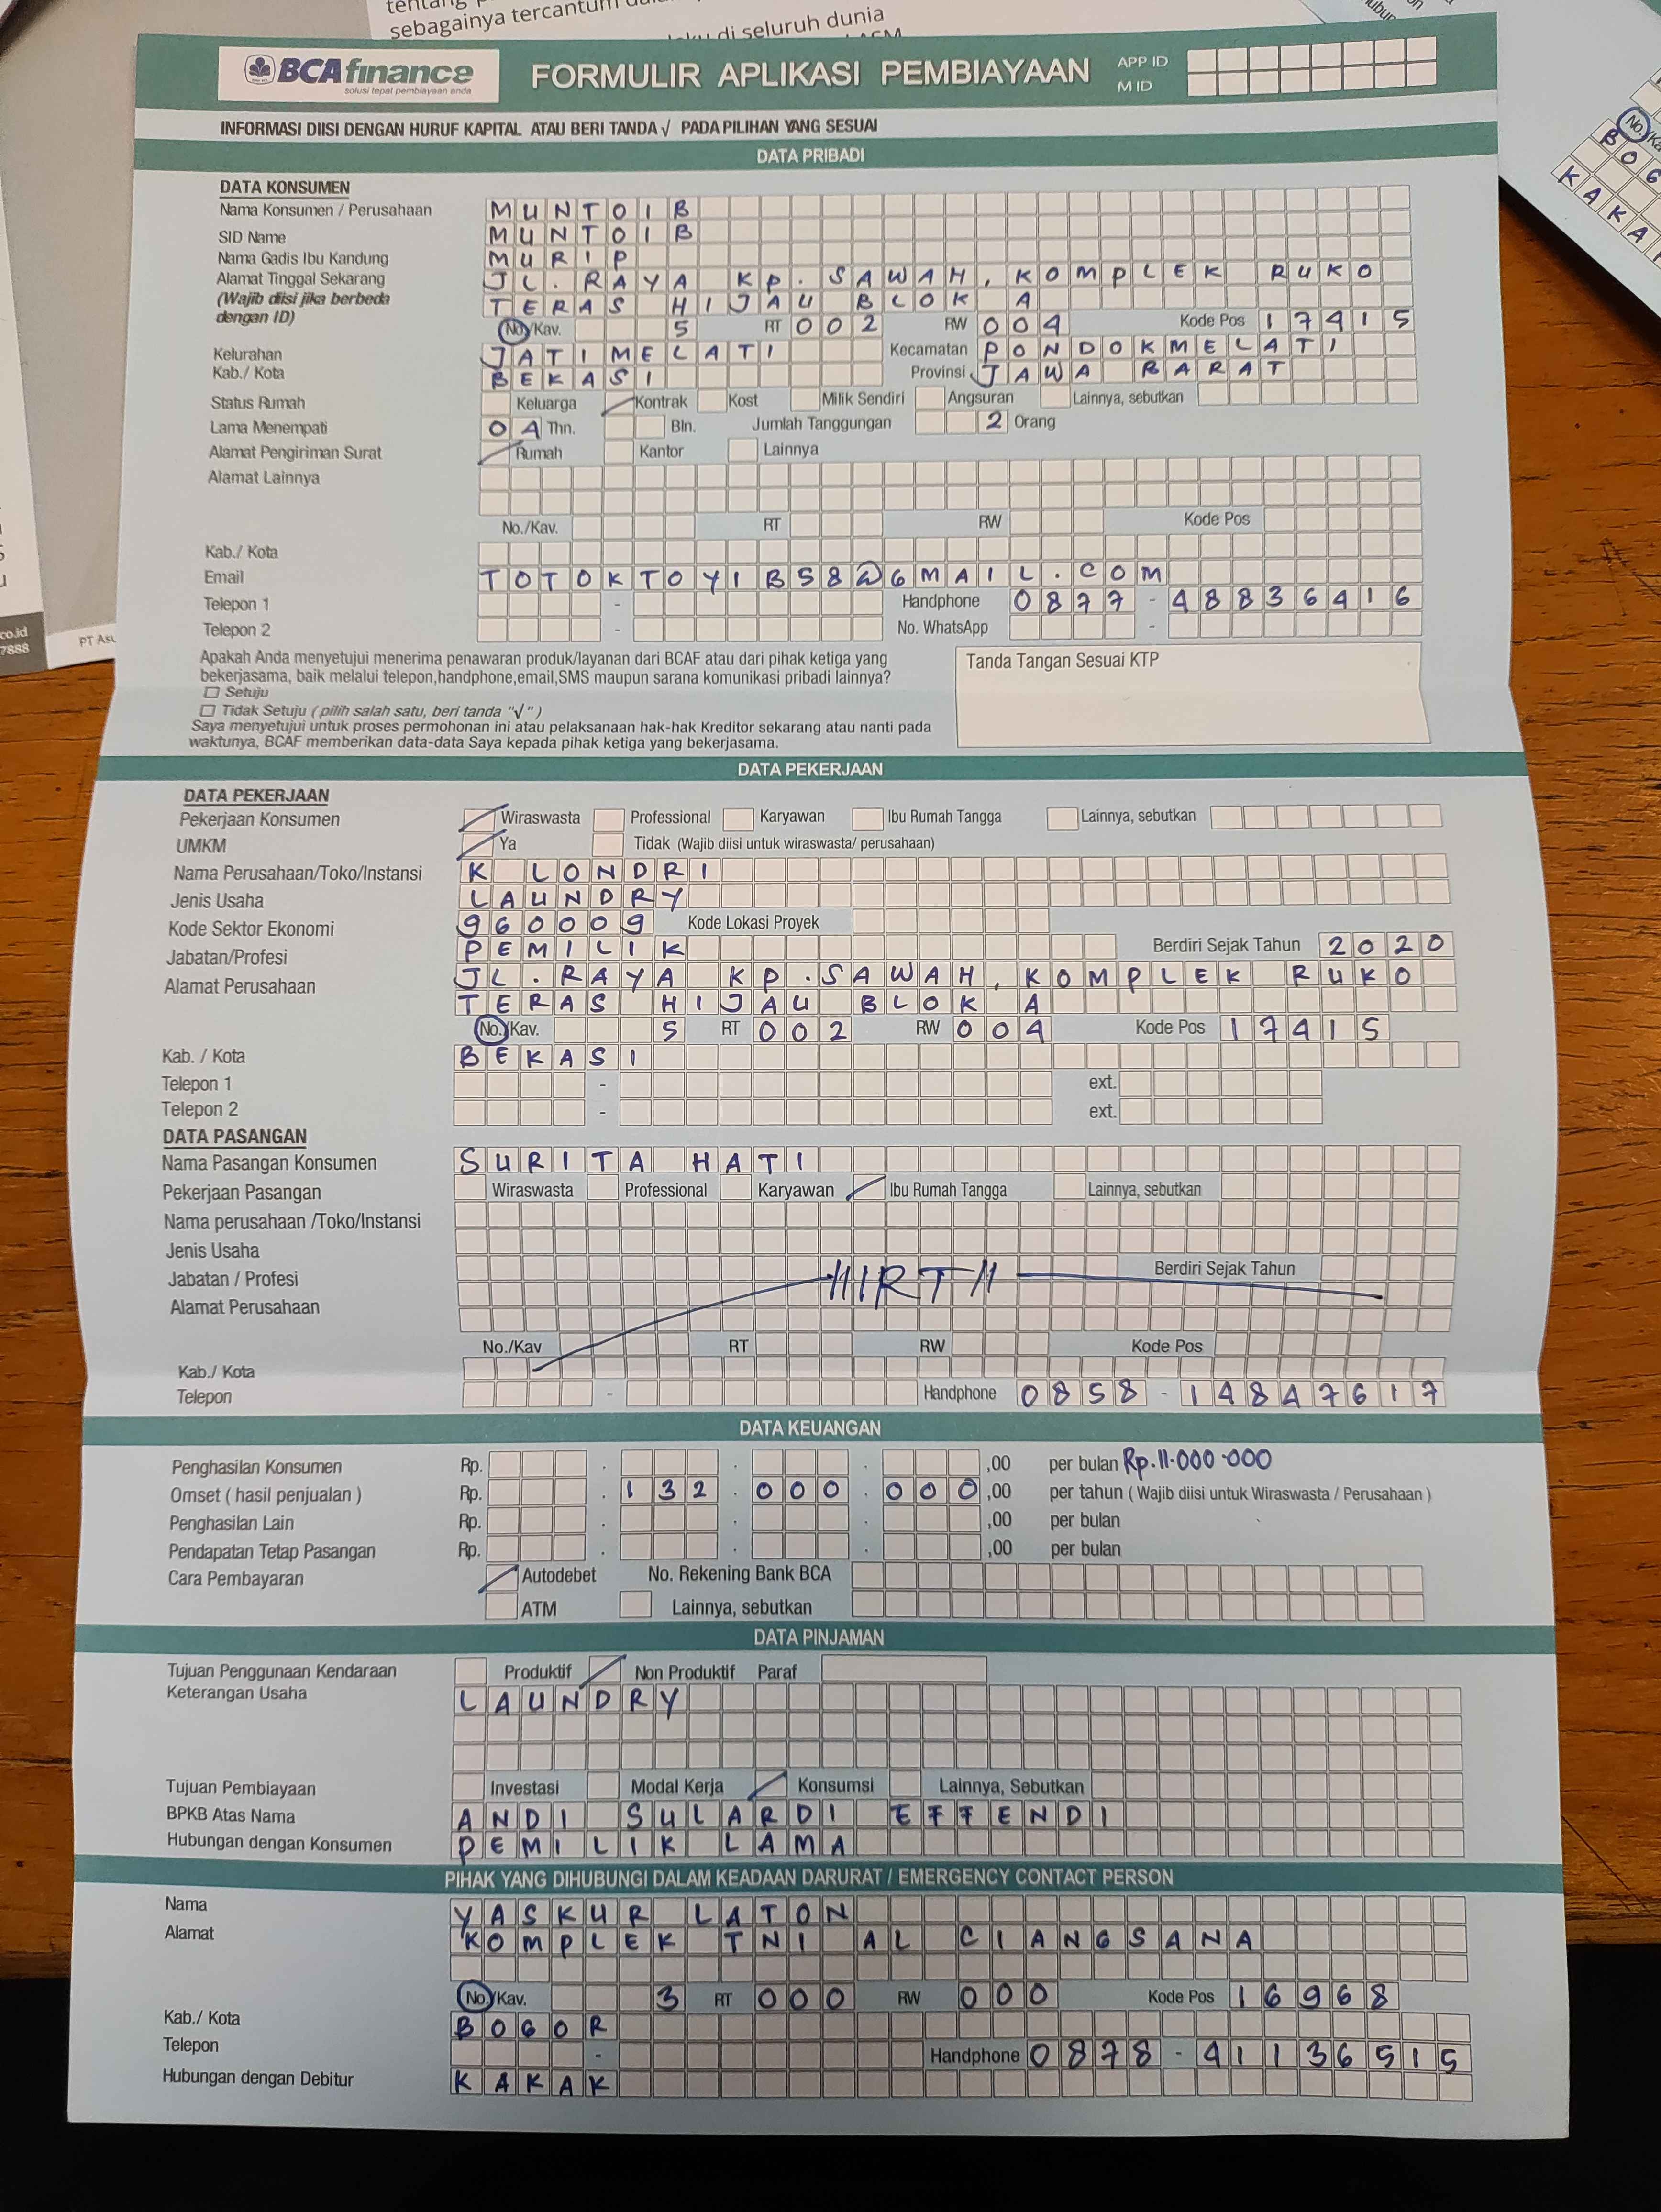 sebagainya tercantum
di seluruh dunia
BCA finance
solusi tepat pembiayaan anda
FORMULIR APLIKASI PEMBIAYAAN
APP ID
M ID
INFORMASI DIISI DENGAN HURUF KAPITAL ATAU BERI TANDA √ PADA PILIHAN YANG SESUAI
DATA PRIBADI
DATA KONSUMEN
Nama Konsumen / Perusahaan MUNTOIB
SID Name MUNTOIB
Nama Gadis Ibu Kandung MURIP
Alamat Tinggal Sekarang JL. RAYA KP. SAWAH, KOMPLEK RUKO
(Wajib diisi jika berbeda TERAS HIJAU BLOK A
dengan ID) No/Kav. 5 RT 002 RW 004 Kode Pos 17415
Kelurahan JATIMELATI Kecamatan PONDOKMELATI
Kab./ Kota BEKASI Provinsi JAWA BARAT
Status Rumah Keluarga Kontrak Kost Milik Sendiri Angsuran Lainnya, sebutkan
Lama Menempati 04 Thn. Bln. Jumlah Tanggungan 2 Orang
Alamat Pengiriman Surat Rumah Kantor Lainnya
Alamat Lainnya
No./Kav. RT RW Kode Pos
Kab./ Kota
Email TOTOKTOYIB58@GMAIL.COM
Telepon 1 - Handphone 0877 - 48836416
Telepon 2 - No. WhatsApp -
Apakah Anda menyetujui menerima penawaran produk/layanan dari BCAF atau dari pihak ketiga yang
bekerjasama, baik melalui telepon,handphone,email,SMS maupun sarana komunikasi pribadi lainnya?
Setuju
Tidak Setuju ( pilih salah satu, beri tanda "√" )
Saya menyetujui untuk proses permohonan ini atau pelaksanaan hak-hak Kreditor sekarang atau nanti pada
waktunya, BCAF memberikan data-data Saya kepada pihak ketiga yang bekerjasama.
Tanda Tangan Sesuai KTP
DATA PEKERJAAN
DATA PEKERJAAN
Pekerjaan Konsumen Wiraswasta Professional Karyawan Ibu Rumah Tangga Lainnya, sebutkan
UMKM Ya Tidak (Wajib diisi untuk wiraswasta/ perusahaan)
Nama Perusahaan/Toko/Instansi K LONDRI
Jenis Usaha LAUNDRY
Kode Sektor Ekonomi 960009 Kode Lokasi Proyek
Jabatan/Profesi PEMILIK Berdiri Sejak Tahun 2020
Alamat Perusahaan JL. RAYA KP. SAWAH, KOMPLEK RUKO
TERAS HIJAU BLOK A
No./Kav. 5 RT 002 RW 004 Kode Pos 17415
Kab. / Kota BEKASI
Telepon 1 - ext.
Telepon 2 - ext.
DATA PASANGAN
Nama Pasangan Konsumen SURITA HATI
Pekerjaan Pasangan Wiraswasta Professional Karyawan Ibu Rumah Tangga Lainnya, sebutkan
Nama perusahaan /Toko/Instansi
Jenis Usaha
Jabatan / Profesi //IRT// Berdiri Sejak Tahun
Alamat Perusahaan
No./Kav RT RW Kode Pos
Kab./ Kota
Telepon - Handphone 0858 - 14847617
DATA KEUANGAN
Penghasilan Konsumen Rp. . . . ,00 per bulan Rp. 11.000.000
Omset ( hasil penjualan ) Rp. . 132 . 000 . 000 ,00 per tahun ( Wajib diisi untuk Wiraswasta / Perusahaan )
Penghasilan Lain Rp. . . . ,00 per bulan
Pendapatan Tetap Pasangan Rp. . . . ,00 per bulan
Cara Pembayaran Autodebet No. Rekening Bank BCA
ATM Lainnya, sebutkan
DATA PINJAMAN
Tujuan Penggunaan Kendaraan Produktif Non Produktif Paraf
Keterangan Usaha LAUNDRY
Tujuan Pembiayaan Investasi Modal Kerja Konsumsi Lainnya, Sebutkan
BPKB Atas Nama ANDI SULARDI EFFENDI
Hubungan dengan Konsumen PEMILIK LAMA
PIHAK YANG DIHUBUNGI DALAM KEADAAN DARURAT / EMERGENCY CONTACT PERSON
Nama YASKUR LATON
Alamat KOMPLEK TNI AL CIANGSANA
No./Kav. 3 RT 000 RW 000 Kode Pos 16968
Kab./ Kota BOGOR
Telepon - Handphone 0878 - 41136515
Hubungan dengan Debitur KAKAK
co.id
7888
PT Asu